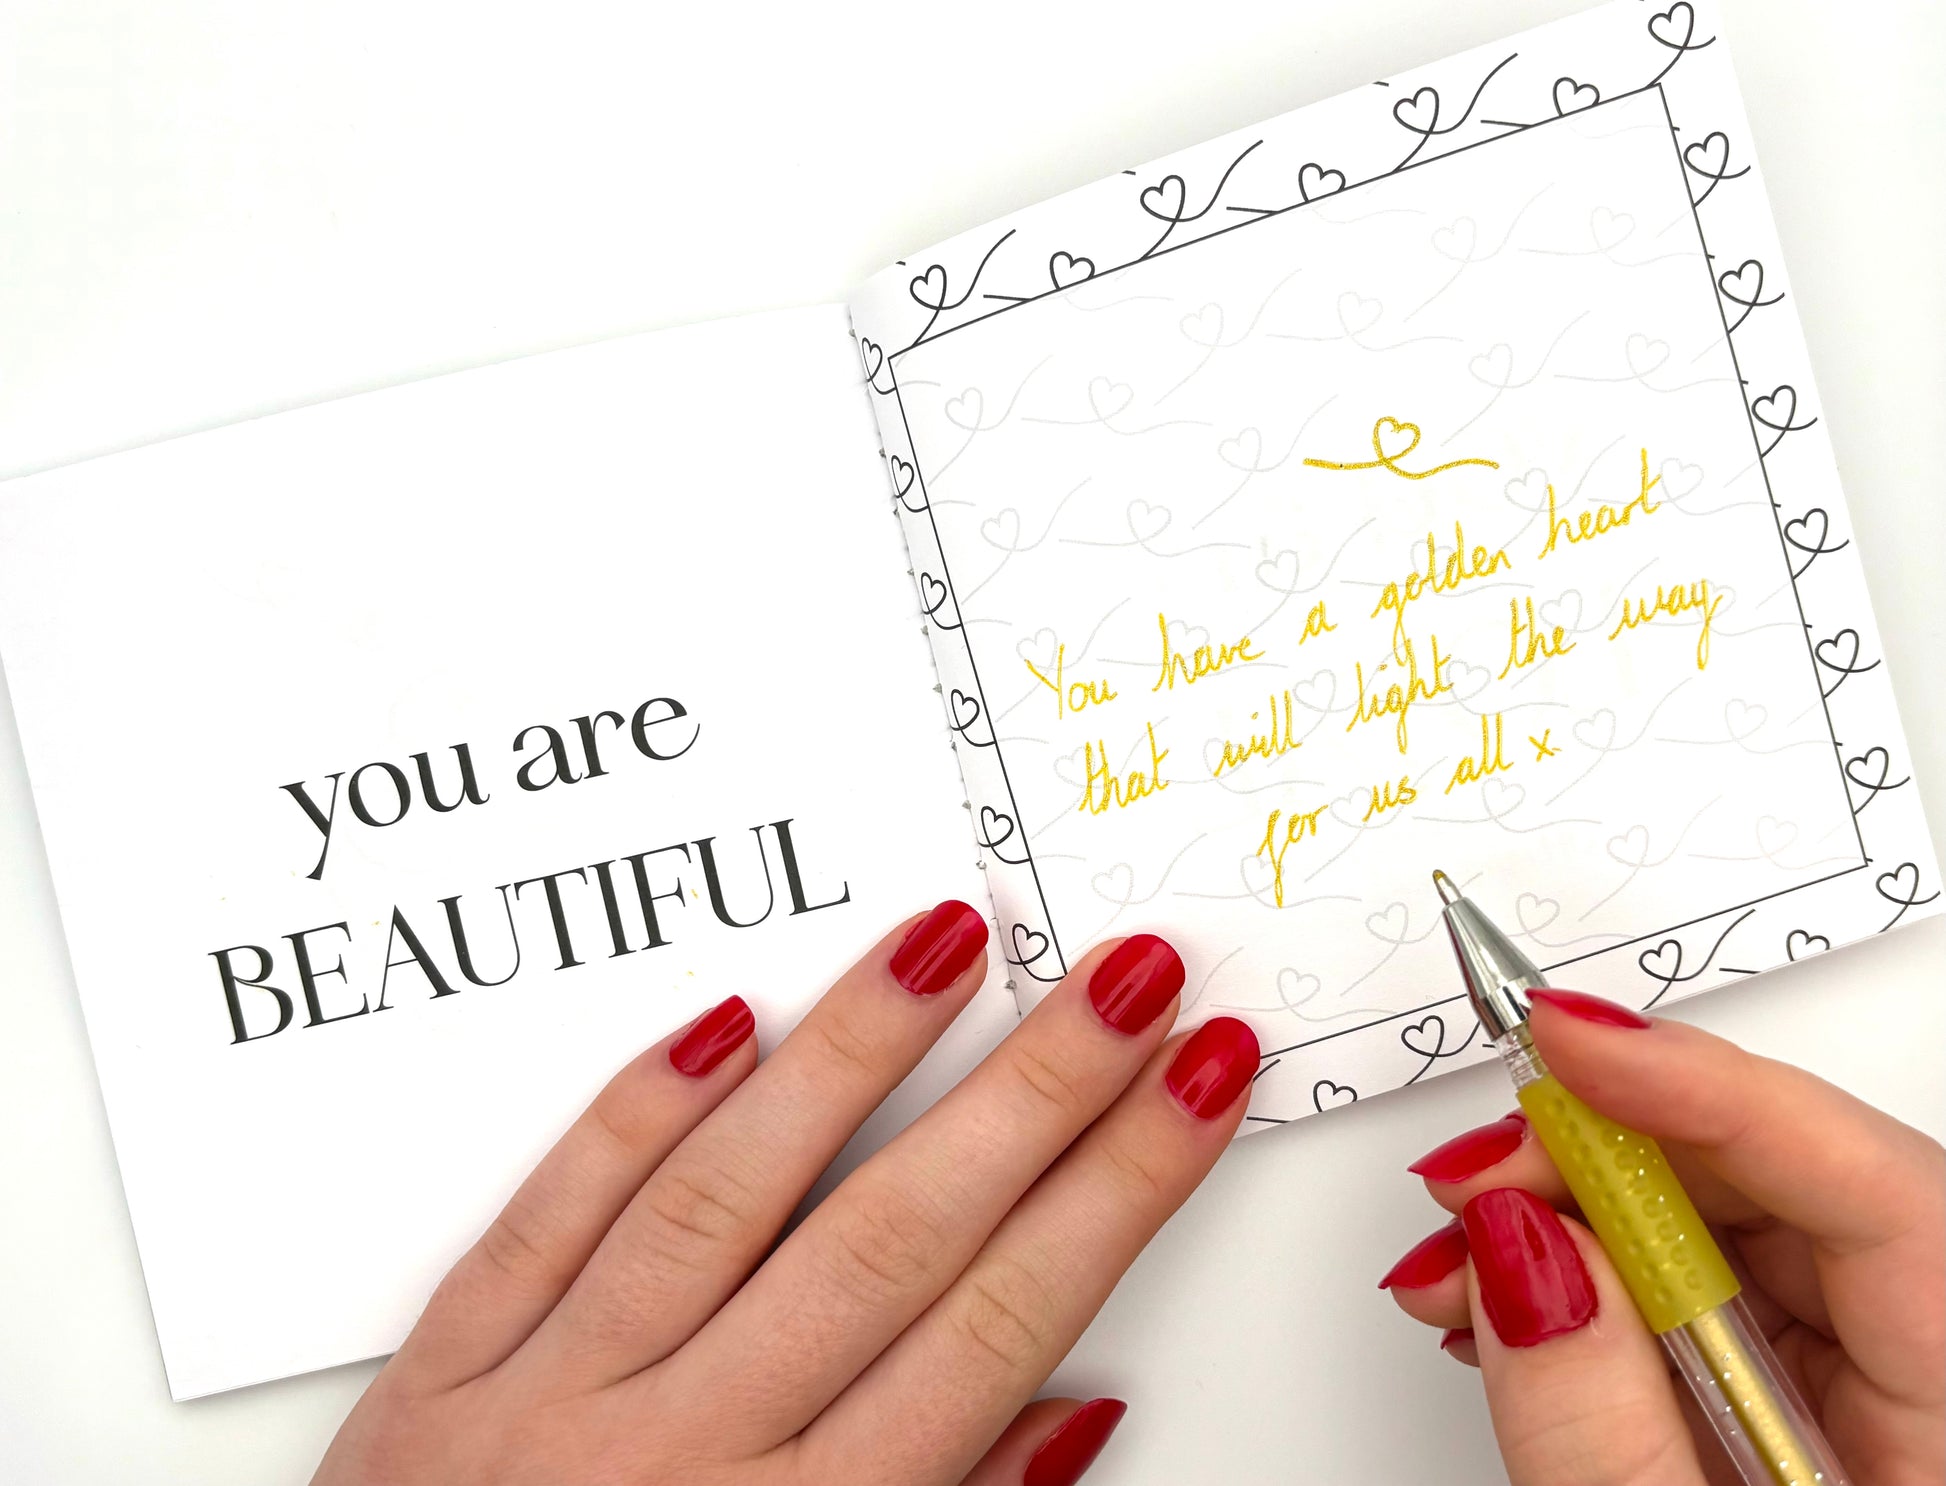 you are
BEAUTIFUL
You have a golden heart
that will light the way
for us all x